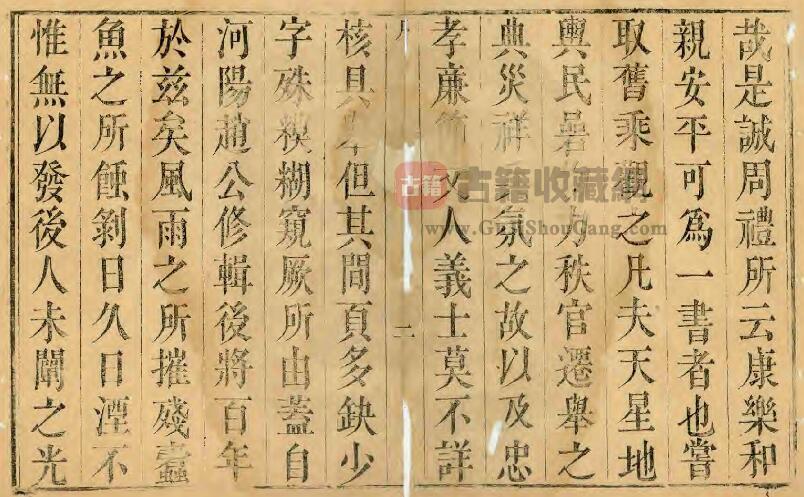 哉是誠周禮所云康樂和
親安平可爲一書者也嘗
取舊乘觀之凡夫天星地
輿民碞力秩官遷舉之
典災祥氛之故以及忠
孝廉節文人義士莫不詳
二
核具但其間頁多缺少
字殊糢糊窺厥所由蓋自
河陽趙公修輯後將百年
於兹矣風雨之所摧殘蠹
魚之所蝕剝日久日湮不
惟無以發後人未闡之光
古籍
古籍收藏網
www.GuJiShouCang.com